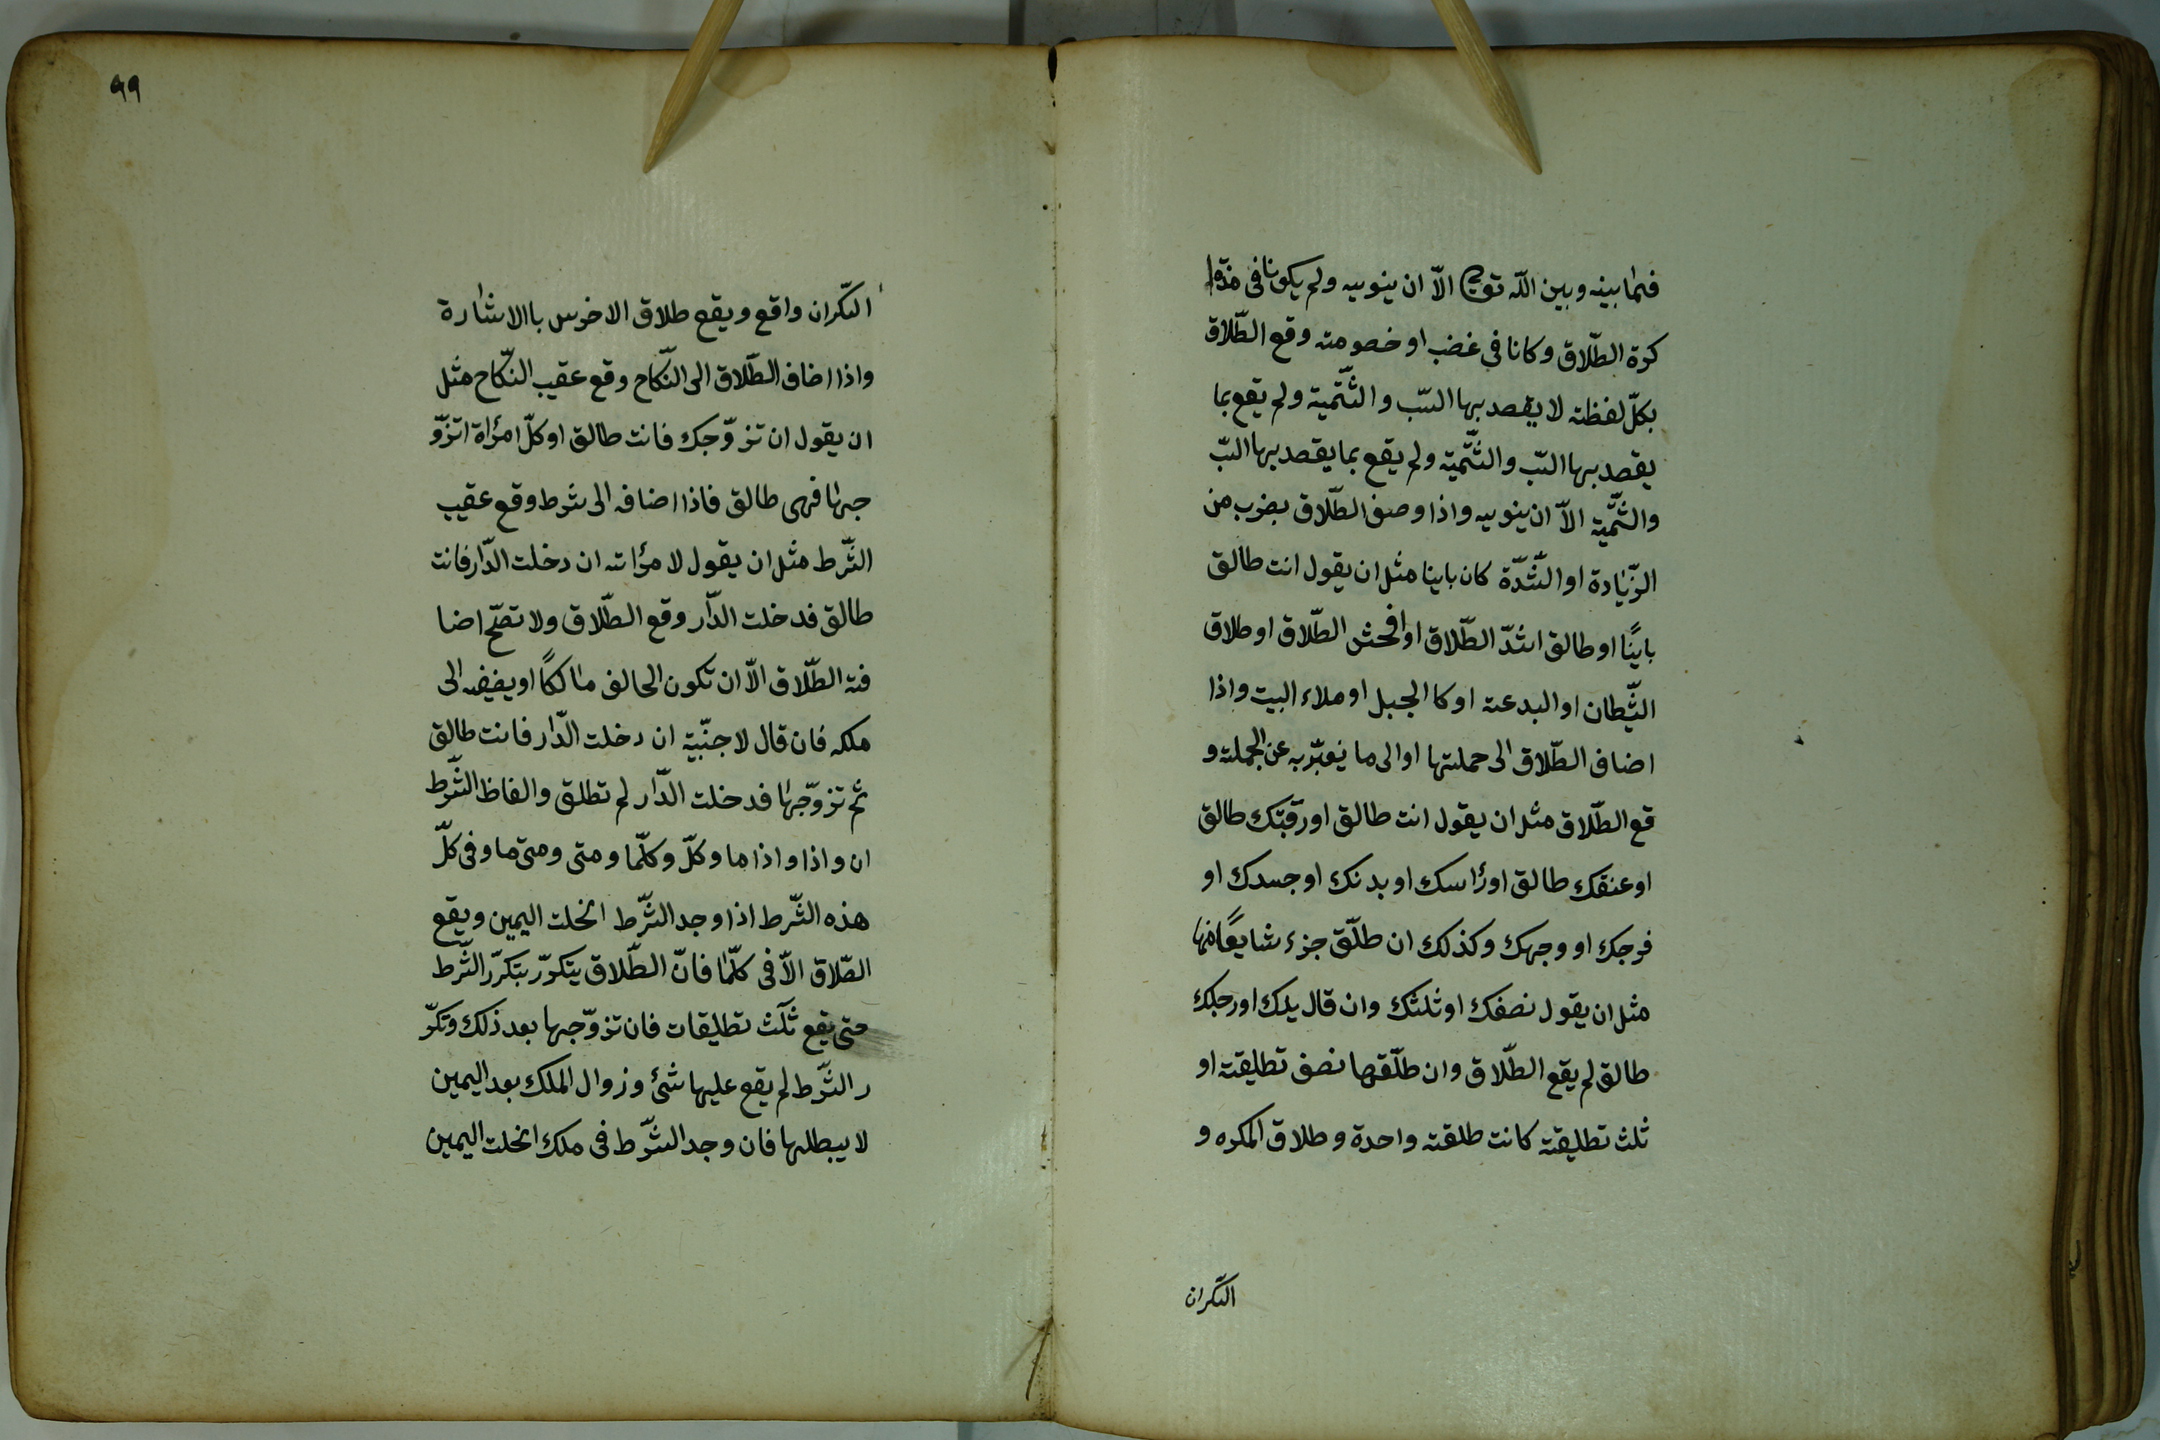 فيما بينه وبين الله تعالى الّا ان ينويه ولم يكونا فى مذا
كرة الطّلاق وكانا فى غضب او خصومته وقع الطّلاق
بكلّ لفظته لا يقصد بها السّب والشّتمية ولم يقع بما
يقصد بها السّب والشّتمية ولم يقع بما يقصد بها السّب
والشّتمية الاّ ان ينويه واذا وصف الطّلاق بضرب من
الزّيادة او الشّدّة كان باينا مثل ان يقول انت طالق
باينًا او طالق اشدّ الطّلاق او افحش الطّلاق او طلاق
الشّيطان او البدعته او كا الجبل او ملاء البيت واذا
اضاف الطّلاق الى جملتها او الى ما يعبّر به عن الجملته و
قع الطّلاق مثل ان يقول انت طالق او رقبتك طالق
او عنقك طالق او رٔاسك او بدنك او جسدك او
فرجك او وجهك وكذلك ان طلّق جزء شايعًا منها
مثل ان يقول نصفك او ثلثك وان قال يدك او رجلك
طالق لم يقع الطّلاق وان طلّقها نصف تطليقته او
ثلث تطليقته كانت طلقته واحدة وطلاق المكره و
السّكران
٩٩
السّكران واقع ويقع طلاق الاخرس باالاشارة
واذا اضاف الطّلاق الى النّكاح وقع عقيب النّكاح مثل
ان يقول ان تزوّجك فانت طالق او كلّ امرٔاة اتزوّ
جها فهى طالق فاذا اضافه الى شرط وقع عقيب
الشّرط مثل ان يقول لامرٔاته ان دخلت الدّار فانت
طالق فدخلت الدّار وقع الطّلاق ولا تصّح اضا
فته الطّلاق الّا ان تكون الحالف مالكًا او يضيفه الى
ملكه فان قال لاجنّبية ان دخلت الدّار فانت طالق
ثم تزوّجها فدخلت الدّار لم تطلق والفاظ الشّرط
ان واذا واذا ما وكلّ وكلّما ومتى ومتى ما وفى كلّ
هذه الشّرط اذا وجد الشّرط انحلت اليمين ويقع
الطّلاق الاّ فى كلّما فانّ الطّلاق يتكرّر بتكرّر الشّرط
حتى يقع ثلٰث تطليقات فان تزوّجها بعد ذلك وتكرّ
ر الشّرط لم يقع عليها شئ وزوال الملك بعد اليمين
لا يبطلها فان وجد الشّرط فى ملك انحلت اليمين